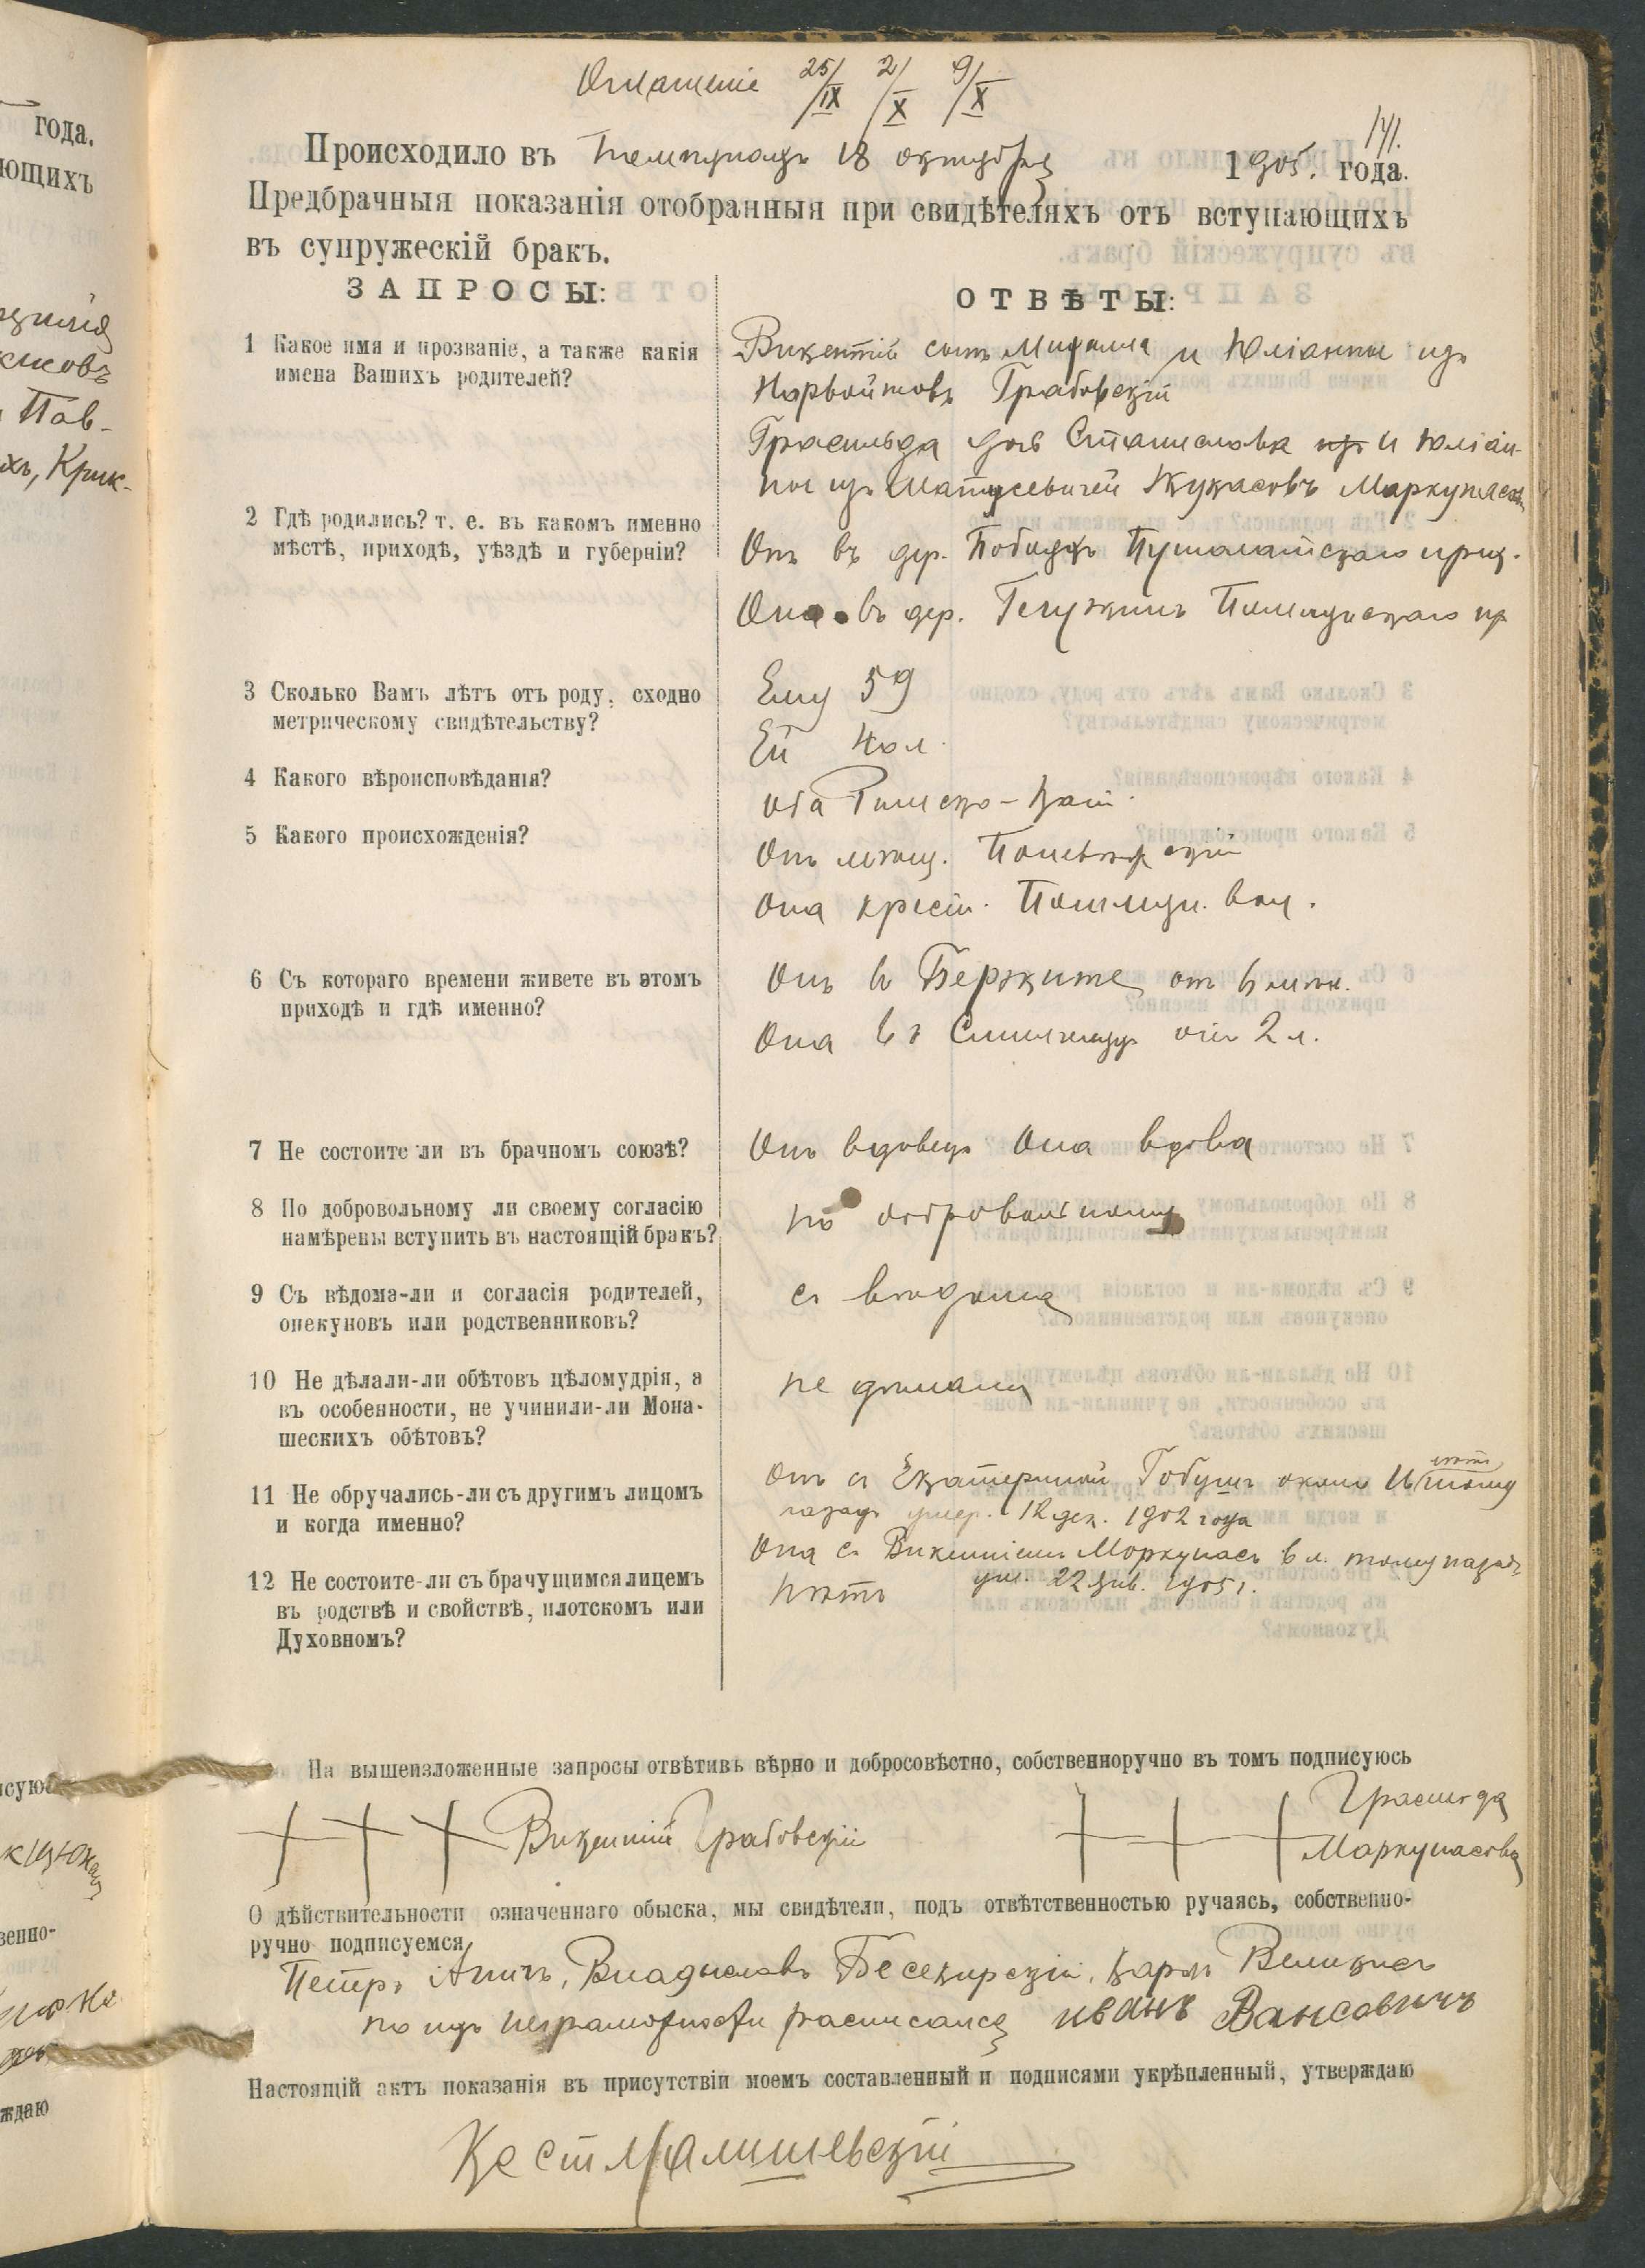 года.
ющихъ
Пав-
хъ, Крик-
Оглашенie 25/IX 2/X 9/X
141.
Происходило въ 18 октября 1905. года.
Предбрачныя показанія отобранныя при свидѣтеляхъ отъ вступающихъ
въ супружескій бракъ.
ЗАПРОСЫ:
ОТВѢТЫ:
1 Какое имя и прозваніе, а также какія
имена Вашихъ родителей?
Викентій сынъ Михаила и Юліанны изъ
Нарвойтовъ Грабовскій
Грасильда дочь Станислава и Юліан-
ны изъ Матусевичей Жукасовъ
2 Гдѣ родились? т. е. въ какомъ именно
мѣстѣ, приходѣ, уѣздѣ и губерніи?
Онъ въ дер. Пушолатскаго прих.
Она въ дер.
3 Сколько Вамъ лѣтъ отъ роду, сходно
метрическому свидѣтельству?
Ему 59
Ей 40 л.
4 Какого вѣроисповѣданія?
Оба Римско-Кат.
5 Какого происхожденія?
Онъ мѣщ.
Она крест. вол.
6 Съ котораго времени живете въ этомъ
приходѣ и гдѣ именно?
Онъ въ
Она въ 2 л.
7 Не состоите ли въ брачномъ союзѣ?
Онъ вдовецъ Она вдова
8 По добровольному ли своему согласію
намѣрены вступить въ настоящій бракъ?
По добровольному
9 Съ вѣдома-ли и согласія родителей,
опекуновъ или родственниковъ?
съ вѣдома
10 Не дѣлали-ли обѣтовъ цѣломудрія, а
въ особенности, не учинили-ли Мона-
шескихъ обѣтовъ?
не дѣлали
11 Не обручались-ли съ другимъ лицомъ
и когда именно?
Онъ съ Екатериной около
назадъ умер. 12 дек. 1902 года
Она съ Викентіемъ 6 л. тому назадъ
ум. 22 янв. 1905 г.
12 Не состоите-ли съ брачущимся лицемъ
въ родствѣ и свойствѣ, плотскомъ или
Духовномъ?
Нѣтъ
На вышеизложенные запросы отвѣтивъ вѣрно и добросовѣстно, собственноручно въ томъ подписуюсь
Викентій Грабовскій
Грасильда
Маркунасова
О дѣйствительности означеннаго обыска, мы свидѣтели, подъ отвѣтственностью ручаясь, собственно-
ручно подписуемся
Петръ Владыславъ Бесекирскій, Карлъ
по ихъ неграмотности расписался иванъ Вансовичъ
Настоящій актъ показанія въ присутствіи моемъ составленный и подписями укрѣпленный, утверждаю
ждаю